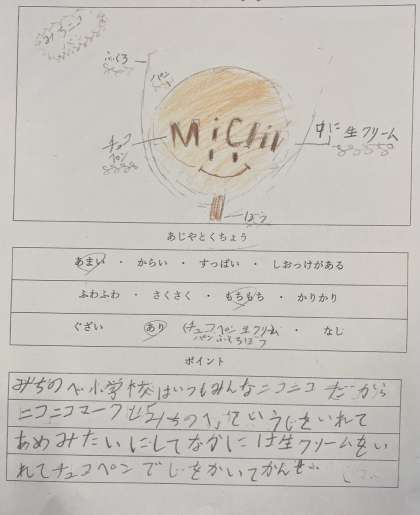 みちニコ
ふくろ
パン
Michi
チョコ
ペン
中に 生クリーム
ぼう
あじやとくちょう
あまい ・ からい ・ すっぱい ・ しおっけがある
ふわふわ ・ さくさく ・ もちもち ・ かりかり
ぐざい あり (チョコペン 生クリーム ・ なし
パン ふくろ ぼう
ポイント
みちのべ小学校はいつもみんなニコニコ だから
ニコニコマークと みちのべっていうじをいれて
あめみたいにしてなかには生クリームをい
れてチョコペンでじをかいてかんせい